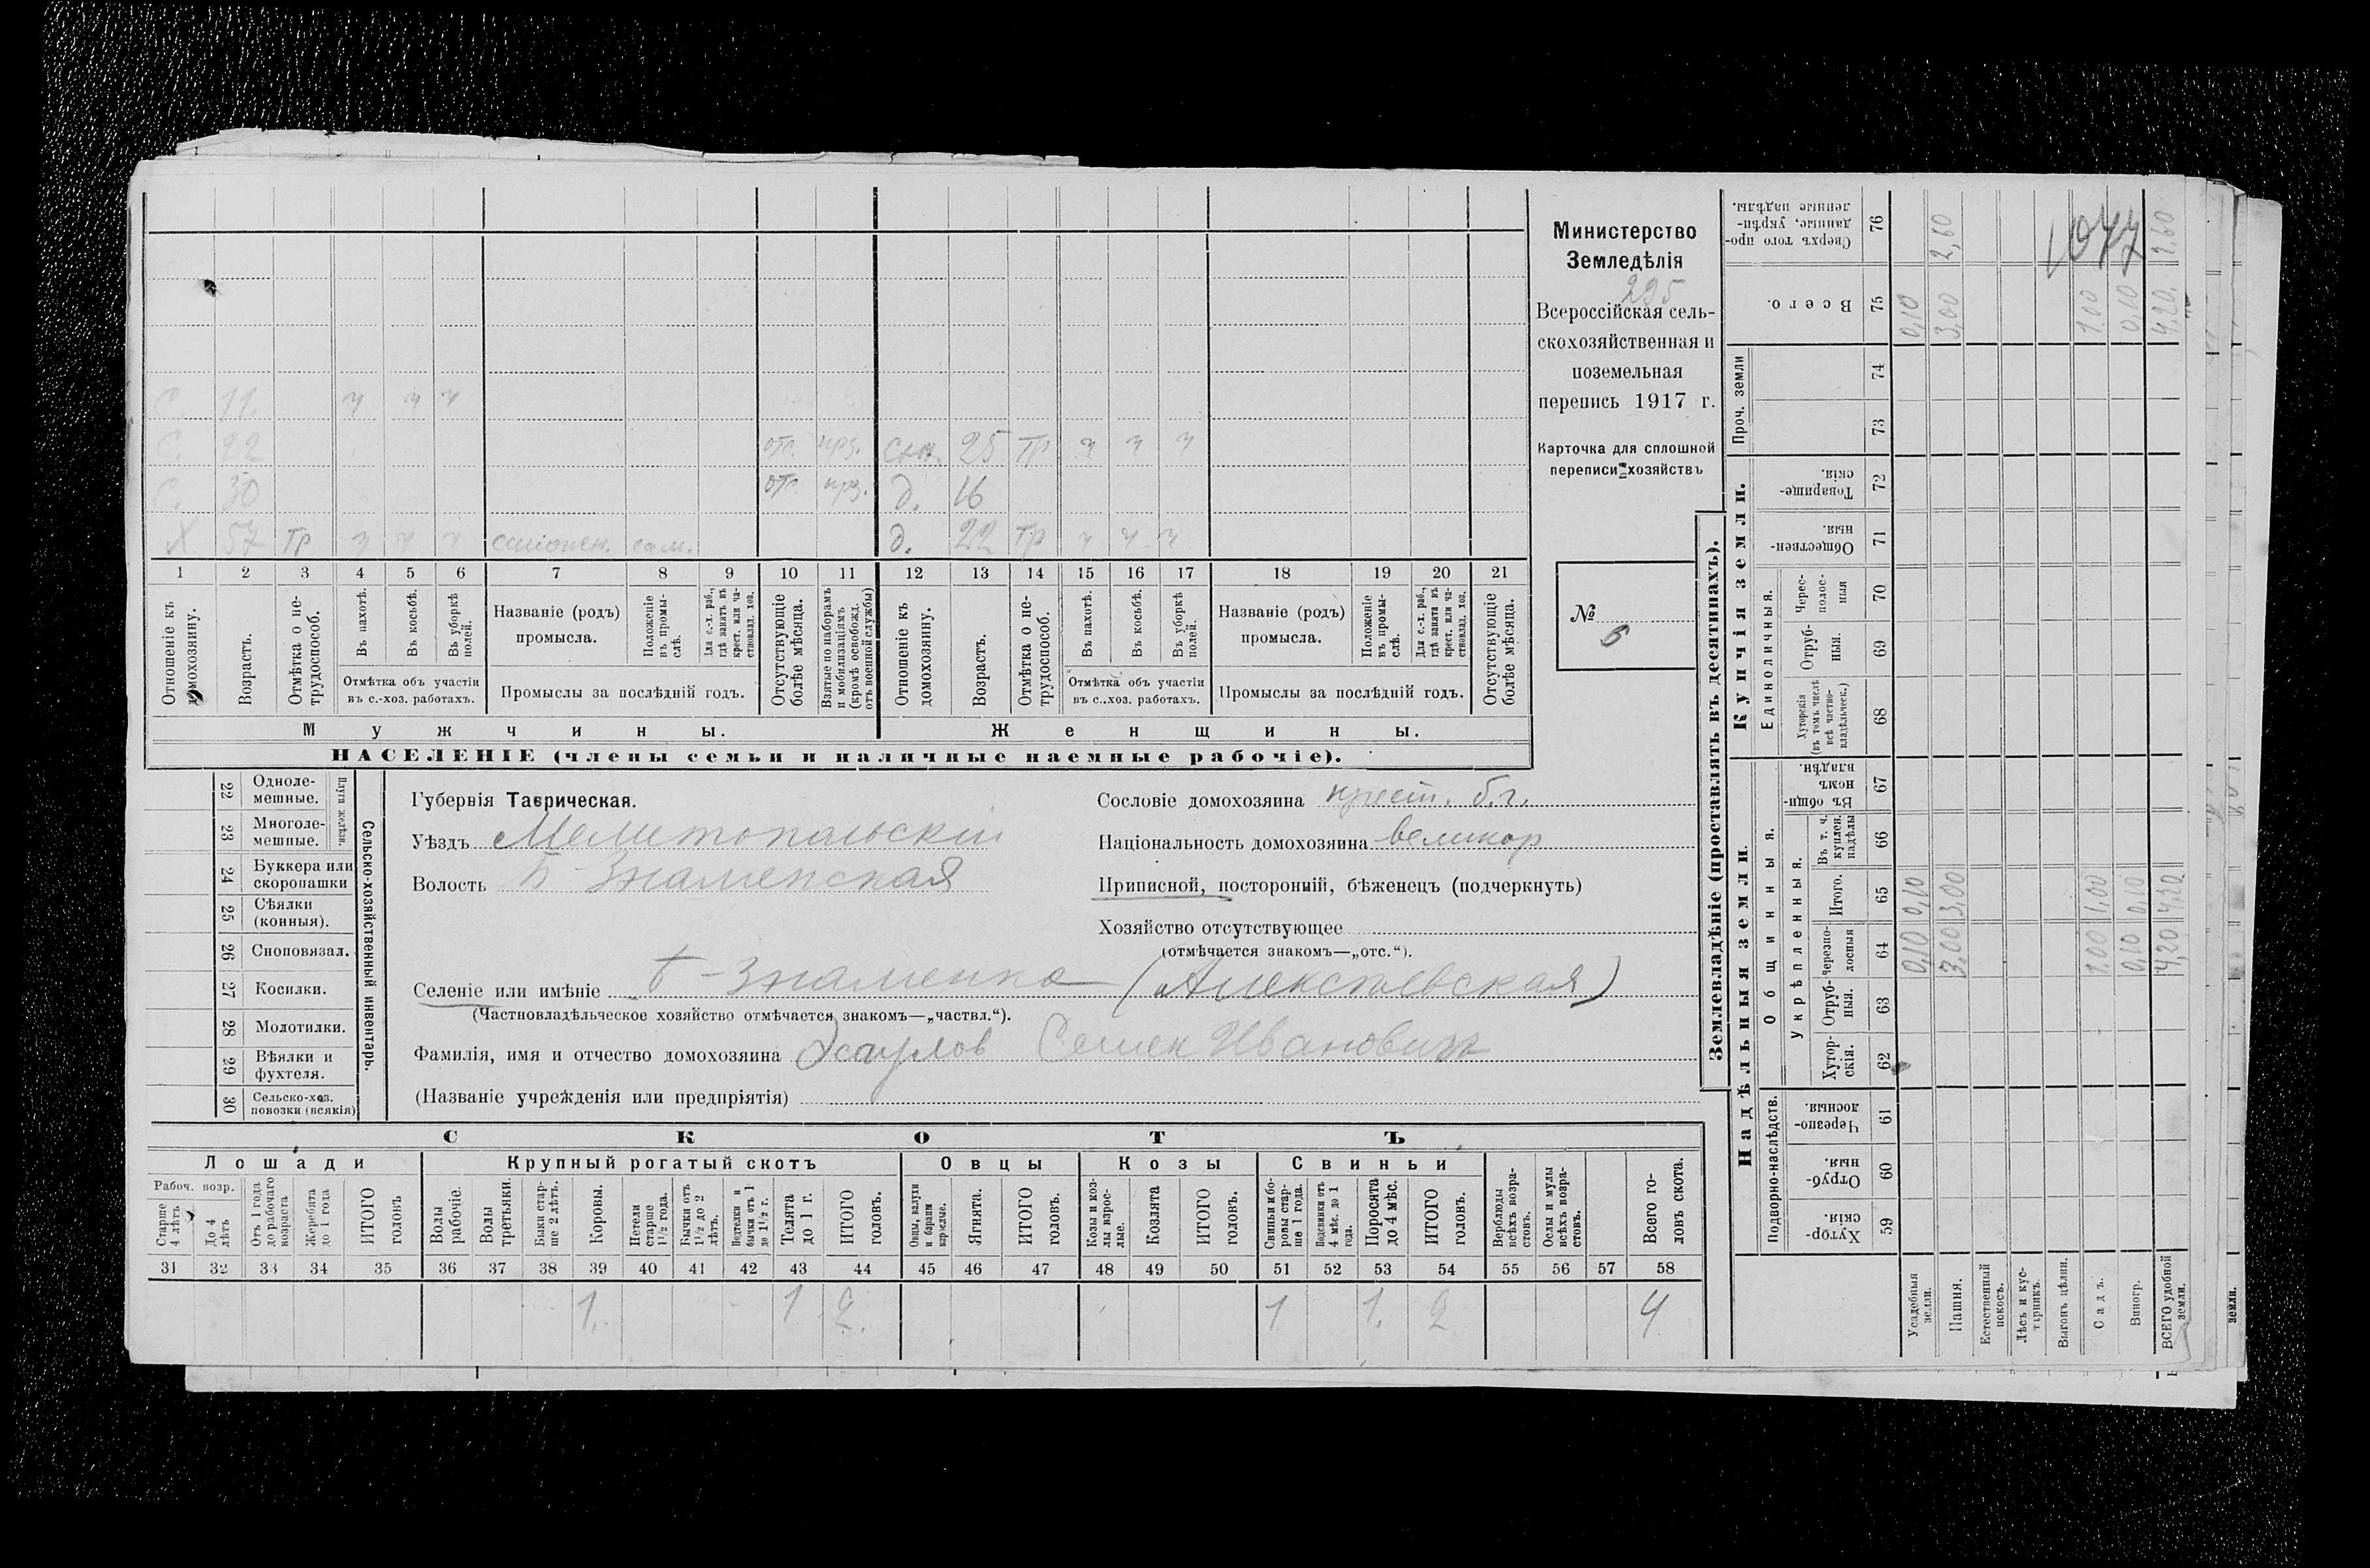 Министерство
Земледѣлія
295
Всероссійская сель-
скохозяйственная и
поземельная
перепись 1917 г.
Карточка для сплошной
переписи хозяйствъ
№
6
С. 11. ч ч ч
С. 22 отс. прз. сн. 25 тр ч ч ч
С. 30 отс. прз. д. 16
Х 57 тр ч ч ч сам. д. 22 тр ч ч ч
1 2 3 4 5 6 7 8 9 10 11 12 13 14 15 16 17 18 19 20 21
Отношеніе къ домохозяину.
Возрастъ.
Отмѣтка о не-трудоспособ.
Въ пахотѣ.
Въ косьбѣ.
Въ уборкѣ полей.
Отмѣтка объ участіи въ с.-хоз. работахъ.
Названіе (родъ) промысла.
Положеніе въ промы-слѣ.
Для с.-х. раб., гдѣ занятъ въ крест. или ча-стновлад. хоз.
Промыслы за послѣдній годъ.
Отсутствующіе болѣе мѣсяца.
Взятые по наборамъ и мобилизаціямъ (кромѣ освобожд. отъ военной службы)
Отношеніе къ домохозяину.
Возрастъ.
Отмѣтка о не-трудоспособ.
Въ пахотѣ.
Въ косьбѣ.
Въ уборкѣ полей.
Отмѣтка объ участіи въ с.-хоз. работахъ.
Названіе (родъ) промысла.
Положеніе въ промы-слѣ.
Для с.-х. раб., гдѣ занята въ крест. или ча-стновлад. хоз.
Промыслы за послѣдній годъ.
Отсутствующіе болѣе мѣсяца.
Мужчины. Женщины.
НАСЕЛЕНІЕ (члены семьи и наличные наемные рабочіе).
22 Одноле-мешные.
23 Многоле-мешные.
Плуги желѣзн.
24 Буккера или скоропашки
25 Сѣялки (конныя).
26 Сноповязал.
27 Косилки.
28 Молотилки.
29 Вѣялки и фухтеля.
30 Сельско-хоз. повозки (всякія)
Сельско-хозяйственный инвентарь.
Губернія Таврическая.
Уѣздъ Мелитопольскій
Волость Б-Знаменская
Сословіе домохозяина крест. б.г.
Національность домохозяина великор
Приписной, посторонній, бѣженецъ (подчеркнуть)
Хозяйство отсутствующее
(отмѣчается знакомъ—„отс.“).
Селеніе или имѣніе Б-Знаменка (Алексѣевская)
(Частновладѣльческое хозяйство отмѣчается знакомъ—„частвл.“).
Фамилія, имя и отчество домохозяина Есаулов Семен Ивановичъ
(Названіе учрежденія или предпріятія)
СКОТЪ
Лошади Крупный рогатый скотъ Овцы Козы Свиньи
Рабоч. возр.
Старше 4 лѣтъ
До 4 лѣтъ
Отъ 1 года до рабочаго возраста
Жеребята до 1 года
ИТОГО головъ
Волы рабочіе.
Волы третьяки.
Быки стар-ше 2 лѣтъ.
Коровы.
Нетели старше 1½ года.
Бычки отъ 1½ до 2 лѣтъ.
Подтелки и бычки отъ 1 до 1½ г.
Телята до 1 г.
ИТОГО головъ.
Овцы, валухи и бараны взрослые.
Ягнята.
ИТОГО головъ.
Козы и коз-лы взрос-лые.
Козлята
ИТОГО головъ.
Свиньи и бо-ровы стар-ше 1 года.
Подсвинки отъ 4 мѣс. до 1 года.
Поросята до 4 мѣс.
ИТОГО головъ.
Верблюды всѣхъ возра-стовъ.
Ослы и мулы всѣхъ возра-стовъ.
Всего го-ловъ скота.
31 32 33 34 35 36 37 38 39 40 41 42 43 44 45 46 47 48 49 50 51 52 53 54 55 56 57 58
1. 1 2. 1 1. 2 4
Землевладѣніе (проставлять въ десятинахъ).
Надѣльныя земли. Купчія земли. Проч. земли
Подворно-наслѣдств.
Общинныя.
Укрѣпленныя.
Единоличныя.
Хутор-скія. 59
Отруб-ныя. 60
Черезпо-лосныя. 61
Хутор-скія. 62
Отруб-ныя. 63
Черезпо-лосныя 64
Итого. 65
Въ т. ч. куплен. надѣлы 66
Въ общи-номъ владѣн. 67
Хуторскія (въ томъ числѣ всѣ частно-владѣльческ.) 68
Отруб-ныя. 69
Черес-полос-ныя 70
Обществен-ныя. 71
Товарище-скія. 72
73
74
Всего. 75
Сверхъ того про-данные, укрѣп-ленные надѣлы. 76
Усадебныя земли. 0,10 0,10 0,10
Пашня. 3,00 3,00 3,00 2,60
Естественный покосъ.
Лѣсъ и кус-тарникъ.
Выгонъ цѣлин.
Садъ. 1.00 1,00 1.00
Виногр. 0,10 0,10 0,10
ВСЕГО удобной земли. 4,20 4,20 4,20. 2.60
1077
земли.